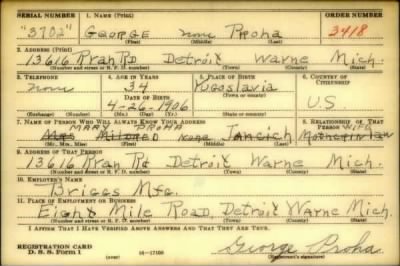 SERIAL NUMBER 1. NAME (Print) ORDER NUMBER
"3702" George none Proha 3418
(First) (Middle) (Last)
2. ADDRESS (Print)
13616 Ryan RD Detroit Warne Mich.
(Number and street or R. F. D. number) (Town) (County) (State)
3. TELEPHONE 4. AGE IN YEARS 5. PLACE OF BIRTH 6. COUNTRY OF CITIZENSHIP
none 34 Yugoslavia
DATE OF BIRTH (Town or county)
4-26-1906 U.S.
(Exchange) (Number) (Mo.) (Day) (Yr.) (State or country)
7. NAME OF PERSON WHO WILL ALWAYS KNOW YOUR ADDRESS 8. RELATIONSHIP OF THAT PERSON
MARY PROHA WIFE
Mrs Mildred none Jancich Mother in law
(Mr., Mrs., Miss) (First) (Middle) (Last)
9. ADDRESS OF THAT PERSON
13616 Ryan Rd Detroit Warne Mich.
(Number and street or R. F. D. number) (Town) (County) (State)
10. EMPLOYER'S NAME
Briggs Mfg.
11. PLACE OF EMPLOYMENT OR BUSINESS
Eight Mile Road, Detroit Warne Mich.
(Number and street or R. F. D. number) (Town) (County) (State)
I AFFIRM THAT I HAVE VERIFIED ABOVE ANSWERS AND THAT THEY ARE TRUE.
REGISTRATION CARD
D. S. S. Form 1 (over) 16—17105 George Proha
(Registrant's signature)